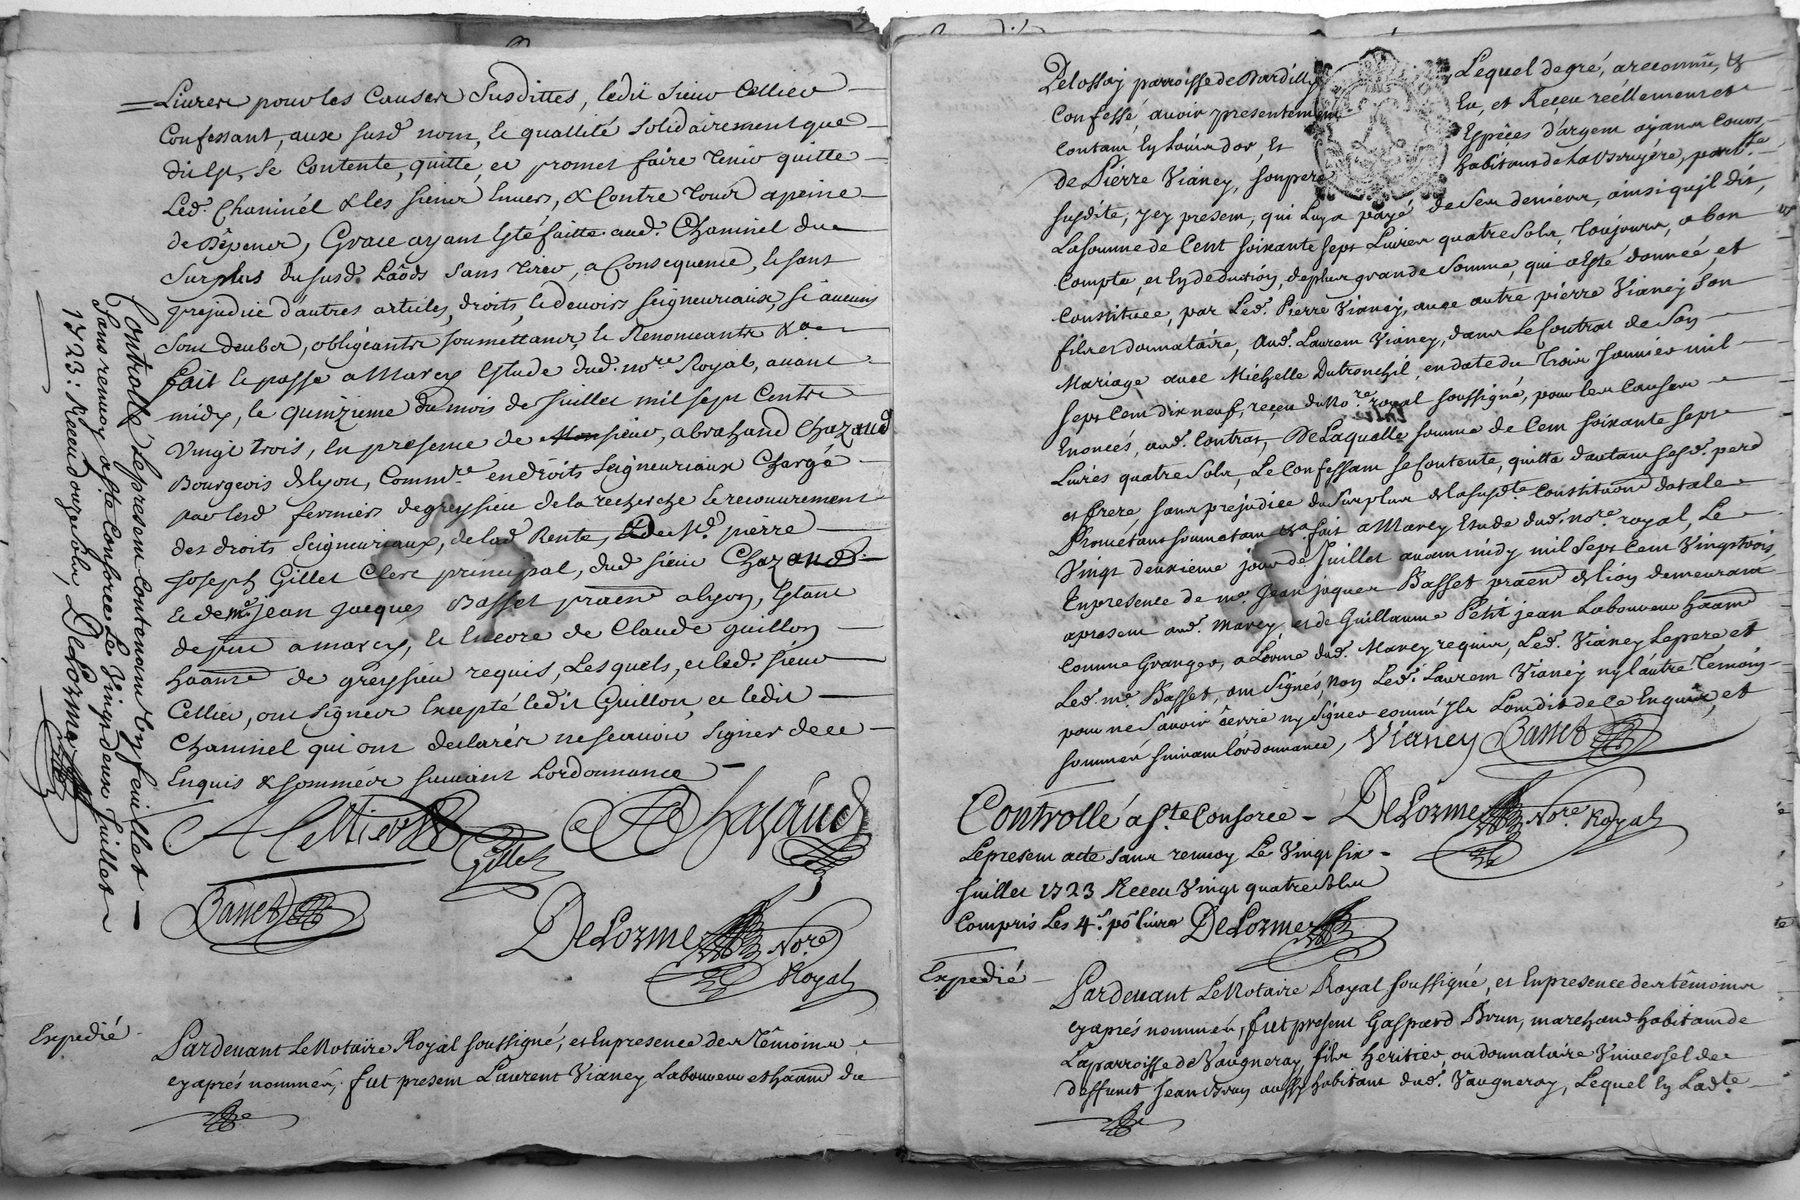 Livres pour les Causes Susdittes, ledit sieur Cellier
Confessant, aux susd. nom, & quallité solidairement que
dit est, se Contente, quitte, et promet faire tenir quitte
Led. Chaminel & les siens Envers, & Contre tous a peine
de Dêpener, Grace ayant Esté faitte aud. Chaminel du
Surplus du susd. Laôds sans tirer, a Consequence, & sans
prejudice d'autres articles, droits, & devoirs seigneuriaux, si aucuns
sont deubs, obligeants soumettants, & Renonceants &a.
fait & passé a Marcy Estude dud. no.re Royal, avant
midy, le quinzieme du mois de Juillet mil sept Cents
Vingt trois, en presence de sieur, abraham Chazaud
Bourgeois de lyon, Comm.re en droits Seigneuriaux Chargé
par lesd fermiers de greysieu de la recherche & recouvrement
des droits Seigneuriaux, de lad. Rente, De Sr. pierre
Joseph Gillet Clerc principal, dud sieur Chazaud
& de me. Jean Jacques Basset praen a lyon, Estant
de put a marcy, & Encore de Claude guillon
haant de greysieu requis, Lesquels, et led. sieur
Cellier, ont signer Excepté ledit Guillon, et ledit
Chaminel qui ont declarés ne scavoir signer de ce
Enquis & sommés suivant Lordonnance
A Cellier
Gillet
A Chazaud
Basset
DeLorme Nore.
Royal
Controllé Le present Contenant Cy feuillet
Sans renvoy a Ste Consorce Le Vingt deux Juillet
1723: Receu douze sols, DeLorme
Expedié
Pardevant Le Notaire Royal soussigné, et En presence des têmoins
cy aprés nommés, fut present Laurent Vianey Laboureur et haant du
Pelossay parroisse de Dardilly Lequel de gré, a reconnu, &
Confessé avoir presentement Eu, et Receu réellement et
Contant En Louis d'or, Et Espêces d'argent ayant Cours
de Pierre Vianey, son pere habitant de La Bruyére, parr.sse
susdite, icy present, qui Luy a payé de ses deniers, ainsi qu'il dit,
La somme de Cent soixante sept Livres quatre Sols, toujours, a bon
Compte, et En deduction, de plus grande somme, qui a Esté donnée, et
Constituee, par Led. Pierre Vianey, avec autre pierre Vianey son
fils et donnataire, aud. Laurent Vianey, dans Le Contrat de son
Mariage avec Michelle Dutronchil, en date du trois Janvier mil
sept Cent dix neuf, reçeu du No.re royal soussigné, pour les Causes
Enoncés, aud. Contrat, De Laquelle somme de Cent soixante sept
Livres quatre Sols, Le Confessant se Contente, quitte d'autant sesd. pere
et frere sans prejudice du Surplus de la susd.te Constituon dotale
Prometant soumetant &a. fait a Marcy Etude dud. no.re royal, Le
Vingt deuxieme jour de Juillet avant midy mil Sept Cent Vingt trois
En presence de me. Jean jaques Basset praen de lion demeurant
apresent aud. Marcy et de Guillaume Petit jean Laboureur haant
Comme Granger, a Lorme dud. Marcy requis, Led. Vianey Le pere et
Led. me. Basset, ont signés, non Led. Laurent Vianey ny l'autre Têmoin
pour ne Savoir êcrire ny signer comm'ils L'ont dit de ce Enquis, et
sommés suivant Lordonnance, Vianey Basset
Controllé a Ste Consorce DeLorme Nore. Royal
Le present acte sans renvoy Le Vingt six
Juillet 1723 Receu Vingt quatre sols
Compris Les 4 s. pô. livre DeLorme
Expedié
Pardevant Le Notaire Royal soussigné, et En presence des têmoins
cy aprés nommés, fut present Gaspard Brun, marchand habitant de
La parroisse de Vaugneray, fils heritier, ou donnataire Universel de
deffunct Jean Brun aussy habitant dud. Vaugneray, Lequel En Lad.te